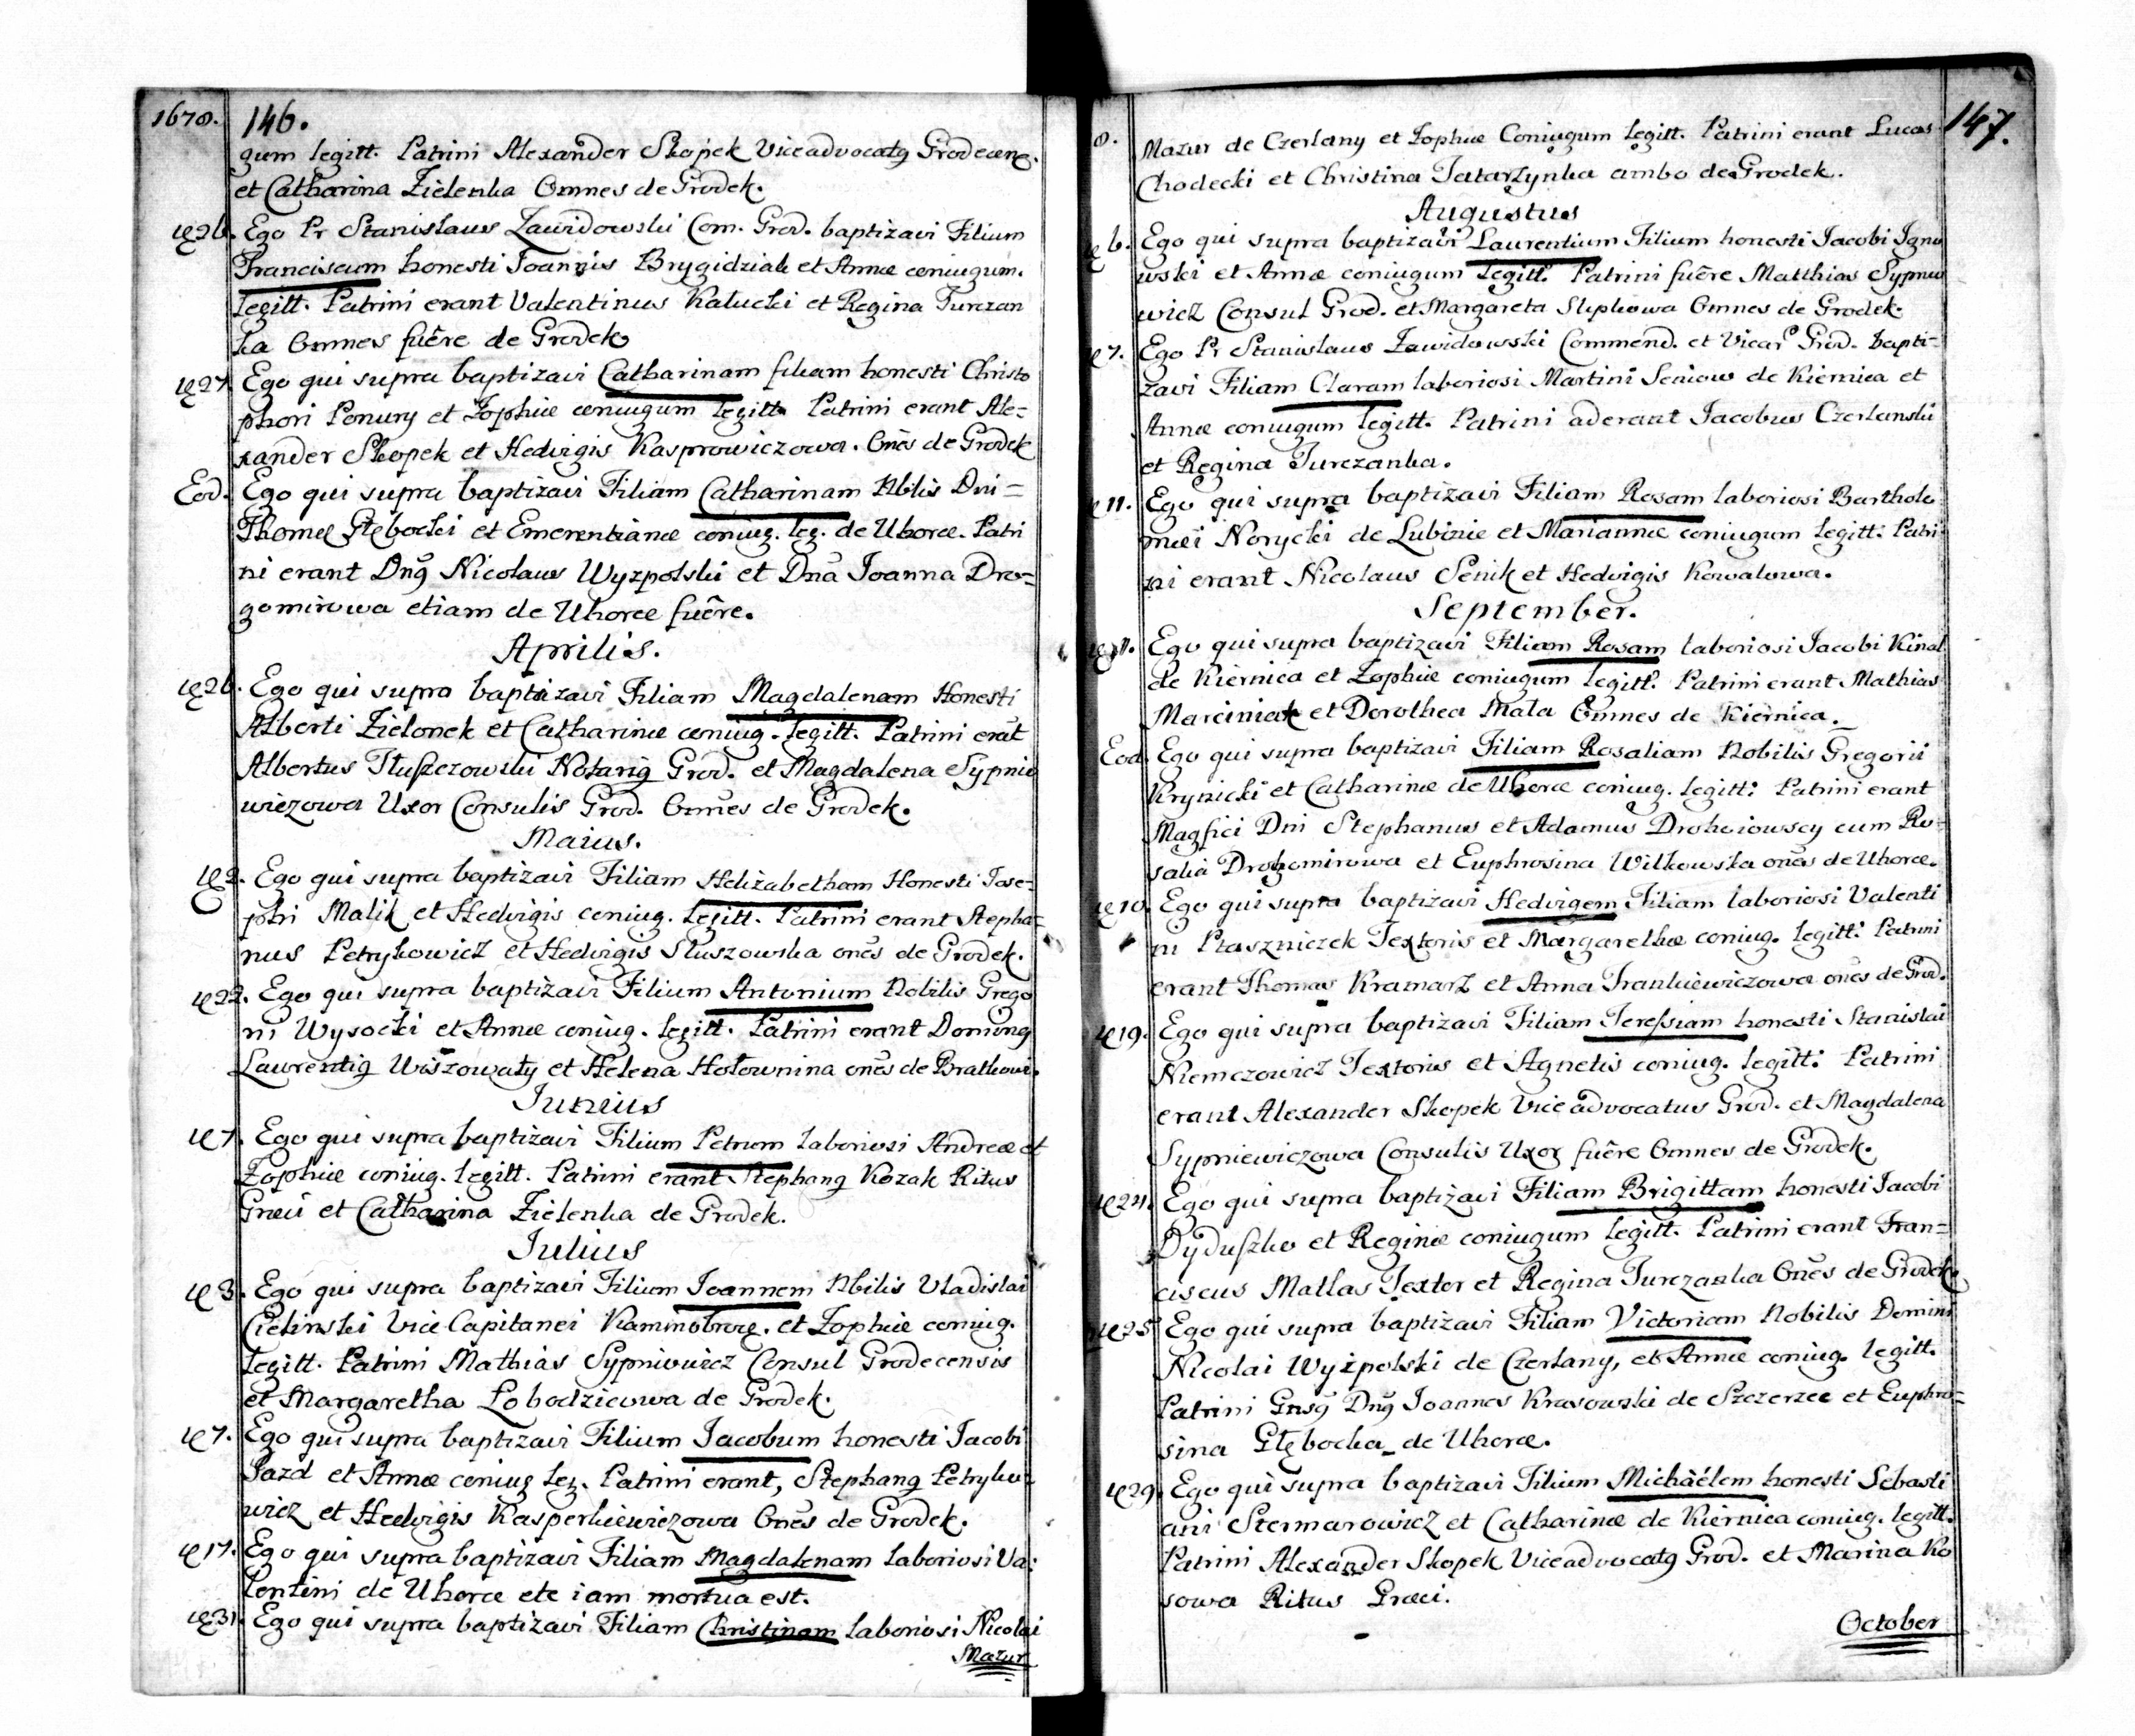 1678. 146.
gum legitt. Patrini Alexander Skopek Viceadvocatq Grodecenq.
et Catharina Zielenka Omnes de Grodek.
26. Ego Pr Stanislaus Zawidowski Com. Grod. baptizavi Filium
Franciscum honesti Joannis Brygidziak et Annæ coniugum.
legitt. Patrini erant Valentinus Kałucki et Regina Turczan
ka Omnes fuêre de Grodek
27. Ego qui supra baptizavi Catharinam filiam honesti Christo
phori Ponury et Zophiæ coniugum legitt. Patrini erant Ale=
xander Skopek et Hedvigis Kasprowiczowa. Onēs de Grodek
Eod. Ego qui supra baptizavi Filiam Catharinam Nbilis Dni=
Thomæ Głębocki et Emerentianæ coniug. leg. de Uhorce. Patri
ni erant Dnq Nicolaus Wyzpolski et Dna Joanna Dro=
gomirowa etiam de Uhorce fuêre.
Aprilis.
26. Ego qui supra baptizavi Filiam Magdalenam Honesti
Alberti Zielonek et Catharinæ coniug. legitt. Patrini erāt
Albertus Tłuszczowski Notariq Grod. et Magdalena Sypnie
wiczowa Uxor Consulis Grod. Omnēs de Grodek.
Maius.
2. Ego qui supra baptizavi Filiam Helizabetham Honesti Jose=
phi Malik et Hedvigis coniug. legitt. Patrini erant Stepha=
nus Petrykowicz et Hedvigis Słuszowska onēs de Grodek.
22. Ego qui supra baptizavi Filium Antonium Nobilis Grego
rii Wysocki et Annæ coniug. legitt. Patrini erant Dominq
Laurentiq Wiszowaty et Helena Hołownina onēs de Bratkowi.
Junius
7. Ego qui supra baptizavi Filium Petrum laboriosi Andreæ et
Zophiæ coniug. legitt. Patrini erant Stephanq Kozak Ritus
Græci et Catharina Zielenka de Grodek.
Julius
3. Ego qui supra baptizavi Filium Joannem Nbilis Vladislai
Cieliński Vice Capitanei et Zophiæ coniug.
legitt. Patrini Mathias Sypniwicz Consul Grodecensis
et Margaretha Łobodzicowa de Grodek.
7. Ego qui supra baptizavi Filium Jacobum honesti Jacobi
Jazd et Annæ coniug leg. Patrini erant, Stephanq Petryko=
wicz et Hedvigis Kasperkiewiczowa Onēs de Grodek.
17. Ego qui supra baptizavi Filiam Magdalenam laboriosi Va=
lentini de Uhorce etc iam mortua est.
31. Ego qui supra baptizavi Filiam Christinam laboriosi Nicolai
Mazur
8. 147.
Mazur de Czerlany et Zophiæ Coniugum legitt. Patrini erant Lucas
Chodecki et Christina Tatarzynka ambo de Grodek.
Augustus
6. Ego qui supra baptizavi Laurentium Filium honesti Jacobi Igna
wski et Annæ coniugum legitt. Patrini fuêre Matthias Sypnie
wicz Consul Grod. et Margareta Slepkowa Omnes de Grodek.
7. Ego Pr Stanislaus Zawidowski Commend. et Vicar Grod. bapti=
zavi Filiam Claram laboriosi Martini Seniow de Kiernica et
Annæ coniugum legitt. Patrini aderant Jacobus Czerlanski
et Regina Turczanka.
11. Ego qui supra baptizavi Filiam Rosam laboriosi Bartholo
mæi Norycki de Lubinie et Mariannæ coniugum legitt: Patri
ni erant Nicolaus Senik et Hedvigis Kowalowa.
September.
Ego qui supra baptizavi Filiam Rosam laboriosi Jacobi Kinal
de Kiernica et Zophiæ coniugum legitt. Patrini erant Mathias
Marciniak et Dorothea Mala Omnes de Kiernica.
Eod. Ego qui supra baptizavi Filiam Rosaliam Nobilis Gregorii
Krynicki et Catharinæ de Uhorce coniug. legitt: Patrini erant
Magfici Dni Stephanus et Adamus Drohoiowscy cum Ro=
salia Drohomirowa et Euphrosina Wilkowska onēs de Uhorce.
10. Ego qui supra baptizavi Hedvigem Filiam laboriosi Valenti
ni Ptaszniczek Textoris et Margarethæ coniug. legitt: Patrini
erant Thomas Kramarz et Anna Frankiewiczowa onēs de Grod.
19. Ego qui supra baptizavi Filiam Teressiam honesti Stanislai
Niemczowicz Textoris et Agnetis coniug. legitt: Patrini
erant Alexander Skopek Vice advocatus Grod. et Magdalena
Sypniewiczowa Consulis Uxor fuêre Omnes de Grodek.
24. Ego qui supra baptizavi Filiam Brigittam honesti Jacobi
Dyduszko et Reginæ coniugum legitt. Patrini erant Fran=
ciscus Mallas Textor et Regina Turczanka Onēs de Grodek.
25 Ego qui supra baptizavi Filiam Victoriam Nobilis Domini
Nicolai Wyżpolski de Czerlany, et Annæ coniug. legitt.
Patrini Gnsq Dnq Joannes Krasowski de Szczerzec et Euphro=
sina Głębocka de Uhorce.
29. Ego qui supra baptizavi Filium Michäelem honesti Sebasti
ani Stermarowicz et Catharinæ de Kiernica coniug. legitt.
Patrini Alexander Skopek Viceadvocatq Grod. et Marina Ko
sowa Ritus Græci.
October